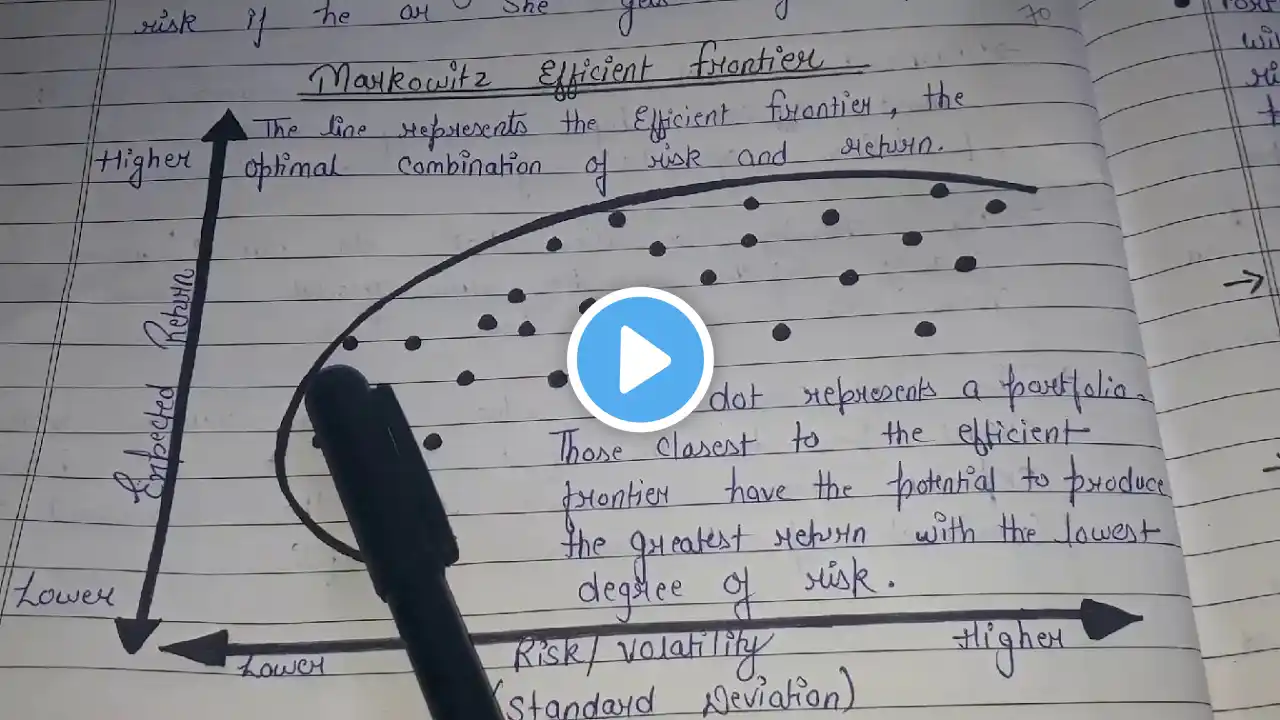 risk if he or she
70
Markowitz Efficient frontier
The line represents the Efficient frontier, the
Higher
optimal combination of risk and return.
Expected Return
dot represents a portfolio.
Those closest to the efficient
frontier have the potential to produce
the greatest return with the lowest
degree of risk.
Lower
Lower
Risk/volatility
Higher
(Standard Deviation)